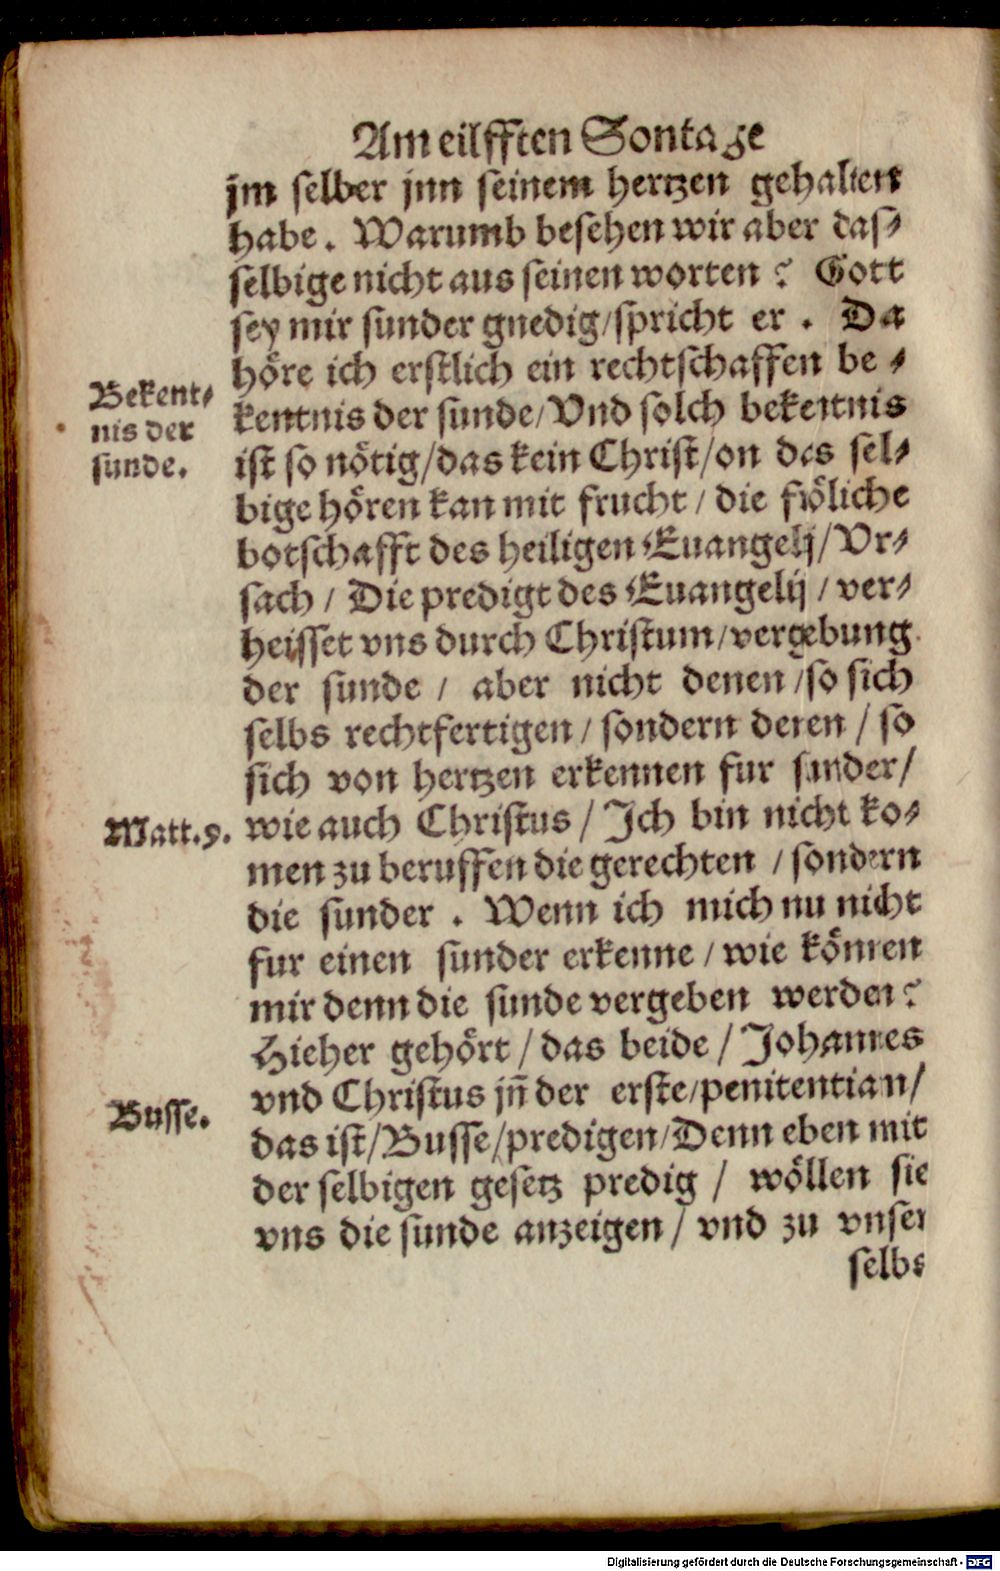 Am eilfften Sontage
jm selber jnn seinem hertzen gehalten
habe. Warumb besehen wir aber das⸗
selbige nicht aus seinen worten? Gott
sey mir sunder gnedig/spricht er. Da
höre ich erstlich ein rechtschaffen be⸗
Bekent⸗
nis der
sunde.
kentnis der sunde/Vnd solch bekentnis
ist so nötig/das kein Christ/on das sel⸗
bige hören kan mit frucht/die fröliche
botschafft des heiligen Euangelij/Vr⸗
sach/Die predigt des Euangelij/ver⸗
heisset vns durch Christum/vergebung
der sunde/aber nicht denen/so sich
selbs rechtfertigen/sondern deren/so
sich von hertzen erkennen fur sunder/
Matt.9.
wie auch Christus/Ich bin nicht ko⸗
men zu beruffen die gerechten/sondern
die sunder. Wenn ich mich nu nicht
fur einen sunder erkenne/wie können
mir denn die sunde vergeben werden?
Hieher gehört/das beide/Johannes
vnd Christus jñ der erste/penitentian/
Busse.
das ist/Busse/predigen/Denn eben mit
der selbigen gesetz predig/wöllen sie
vns die sunde anzeigen/vnd zu vnser
selbs
Digitalisierung gefördert durch die Deutsche Forschungsgemeinschaft - DFG